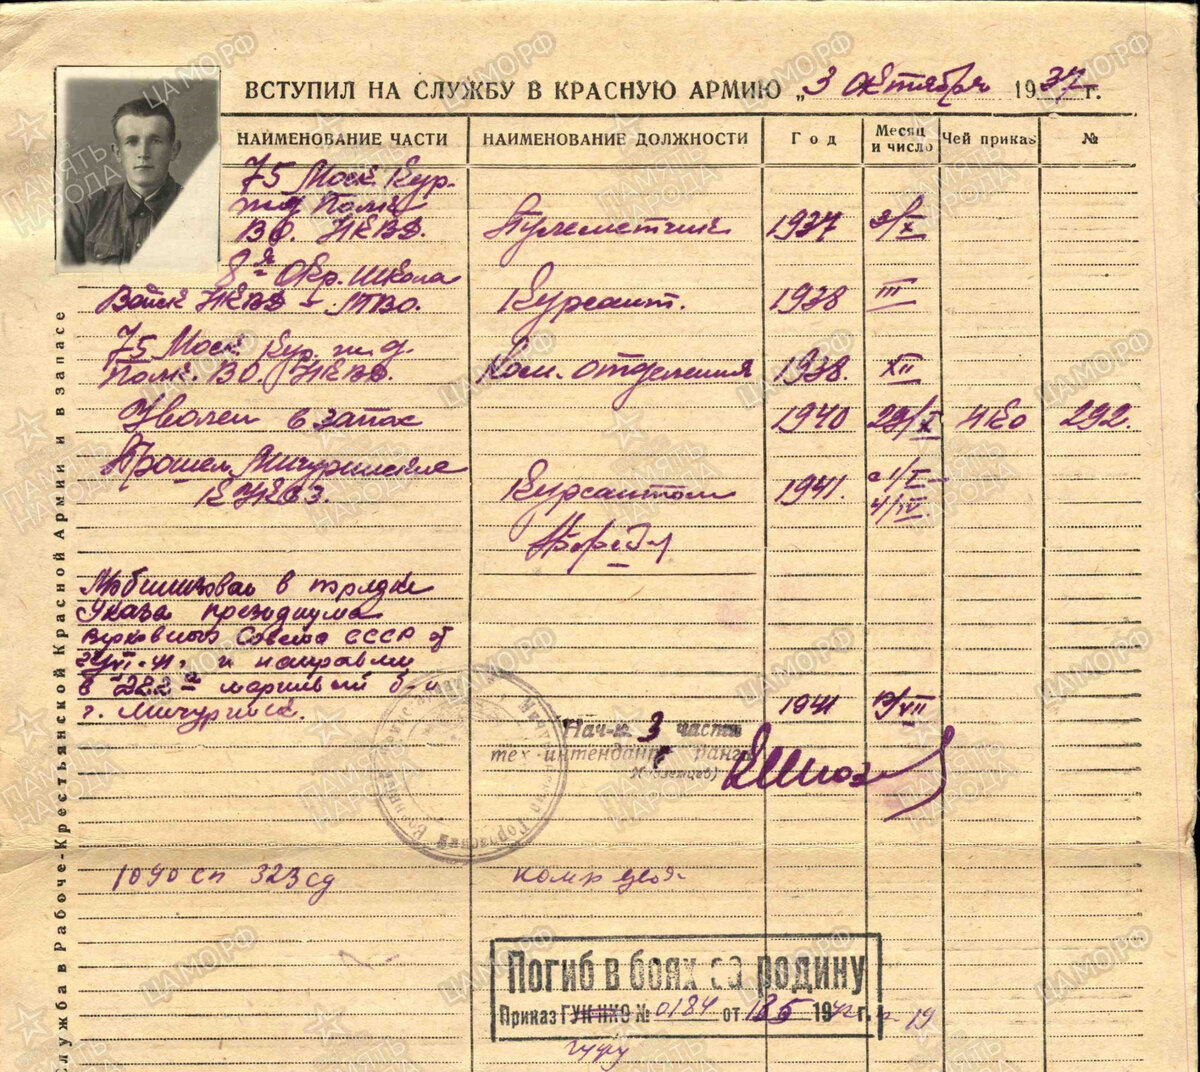 ВСТУПИЛ НА СЛУЖБУ В КРАСНУЮ АРМИЮ „3 октября 1937 г.
НАИМЕНОВАНИЕ ЧАСТИ НАИМЕНОВАНИЕ ДОЛЖНОСТИ Год Месяц и число Чей приказ №
75 Моск. Кур.
ж.д. Полк
ВО. НКВД. Пулеметчик 1937 3/X
8я Окр. школа
Войск НКВД - МВО. Курсант. 1938 III
75 Моск. Кур. ж.д.
Полк. ВО. НКВД. Ком. отделения 1938. XII
Уволен в запас 1940 29/X НКО 292.
Прошел Мичуринские
КУКСЗ. Курсантом 1941. с 1/I - 4/IV.
Мобилизован в порядке
Указа президиума
Верховного Совета СССР от
и направлен
в 222й маршевый б-н
г. Мичуринск. 1941 19/VII
Нач-к 3 части
тех-интендант ранга
1090 сп 323 сд ком
Погиб в боях за родину
Приказ ГУК НКО № 0184 от 1942 г. п 19
гуфу
Служба в Рабоче-Крестьянской Красной Армии и в запасе
ЦАМО.РФ
ПАМЯТЬ НАРОДА